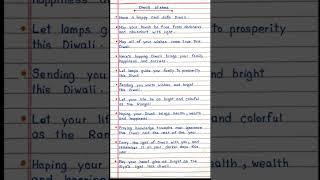 Diwali Wishes
Have a happy and safe Diwali.
May your home be free from darkness
and abundant with light.
May all of your wishes come true this
Diwali.
Here's hoping Diwali brings your family
happiness and success.
Let lamps guide your family to prosperity
this Diwali.
Sending you warm wishes and bright
this Diwali.
Let your life be as bright and colorful
as the Rangoli.
Hoping your Diwali brings health, wealth
and happiness.
Praying knowledge triumphs over ignorance
this Diwali and the rest of the year.
Carry the light of Diwali with you, and
remember it on your darker days this
year.
May your heart glow as bright as the
diya's light this Diwali.
Let lamps
this Diwali.
Sending you
this Diwali.
Let your life
as the Ran
Hoping your
and happines
to prosperity
bright
and colorful
health, wealth